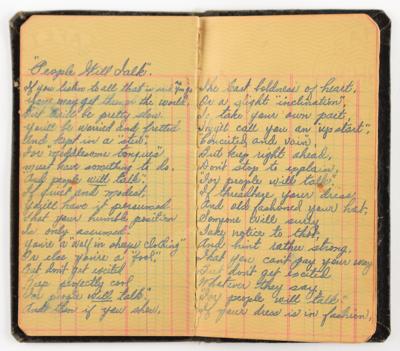 "People Will Talk."
If you listen to all that is said
You may get thro' the world,
But 'twill be pretty slow.
You'll be worried and fretted
And kept in a "stew",
For meddlesome tongues
must have something to do,
And people will talk.
If quiet and modest,
You'll have it presumed
That your humble position
Is only assumed.
You're a wolf in sheep's clothing"
Or else you're a "fool,"
But don't get excited
Keep perfectly cool
For people will talk,
And then if you show,
The least boldness of heart,
Or a slight "inclination",
To take your own part,
They'll call you an "upstart",
Conceited and vain",
But keep right ahead,
Don't stop to explain,
For people will talk,
If threadbare your dress,
And old fashioned your hat,
Someone will surely
Take notice to that,
And hint rather strong,
That you can't pay your way
But don't get excited
Whatever they say,
For people will talk."
If your dress is in fashion,